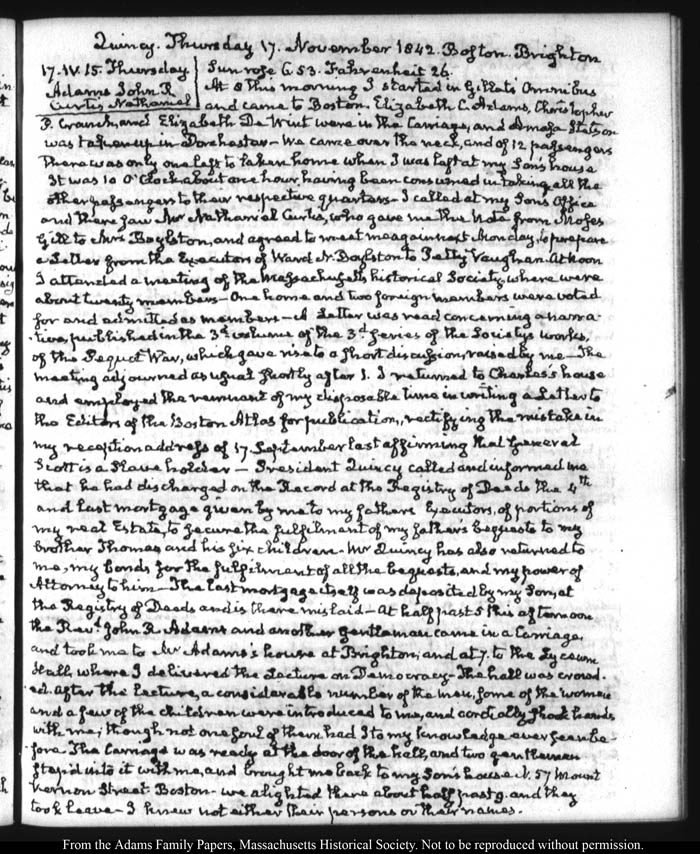 Quincy. Thursday 17. November 1842. Boston. Brighton
17. IV. 15. Thursday. Sun rose 6.53. Fahrenheit 26.
Adams John R At 8 this morning I started in Gillett's Omnibus
Curtis Nathaniel and came to Boston. Elizabeth C. Adams, Christopher
P. Cranch, and Elizabeth De Wint were in the Carriage, and Amasa Stetson
was taken up in Dorchester - We came over the neck, and of 12 passengers
there was only one left to taken home when I was left at my Son's house
It was 10 O'Clock about one hour having been consumed in taking all the
other passengers to their respective quarters - I called at my Son's Office
and there saw Mr Nathaniel Curtis, who gave me the Note from Moses
Gill to Mrs Boylston, and agreed to meet me again next Monday, to prepare
a Letter from the Executors of Ward N. Boylston to Petty Vaughan. At Noon
I attended a meeting of the Massachusetts historical Society, where were
about twenty members - One home and two foreign members were voted
for and admitted as members - A Letter was read concerning a narra-
tive, published in the 3d. volume of the 3d. series of the Society's works,
of the Pequot War, which gave rise to a short discussion, raised by me - The
meeting adjourned as usual shortly after 1. I returned to Charles's house
and employed the remnant of my disposable time in writing a Letter to
the Editor of the Boston Atlas for publication, rectifying the mistake in
my reception address of 17. September last affirming that General
Scott is a Slave holder - President Quincy called and informed me
that he had discharged on the Record at the Registry of Deeds the 4th.
and last mortgage given by me to my father's Executors, of portions of
my real Estate, to secure the fulfilment of my father's bequests to my
brother Thomas and his six children - Mr Quincy has also returned to
me, my bonds for the fulfilment of all the bequests, and my power of
Attorney to him - The last mortgage itself was deposited by my Son, at
the Registry of Deeds and is there mislaid - At half past 5 this afternoon
the Revd. John R. Adams and another gentleman came in a Carriage,
and took me to Mr Adams's house at Brighton, and at 7. to the Lyceum
Hall, where I delivered the Lecture on Democracy. The hall was crowd-
ed. after the lecture, a considerable number of the men, some of the women
and a few of the children were introduced to me, and cordially shook hands
with me; though not one soul of them had I to my knowledge ever seen be-
fore. The Carriage was ready at the door of the hall, and two gentlemen
stepd into it with me, and brought me back to my Son's house N. 57 Mount
Vernon Street Boston - we alighted there about half past 9. and they
took leave - I knew not either their persons or their names.
From the Adams Family Papers, Massachusetts Historical Society. Not to be reproduced without permission.